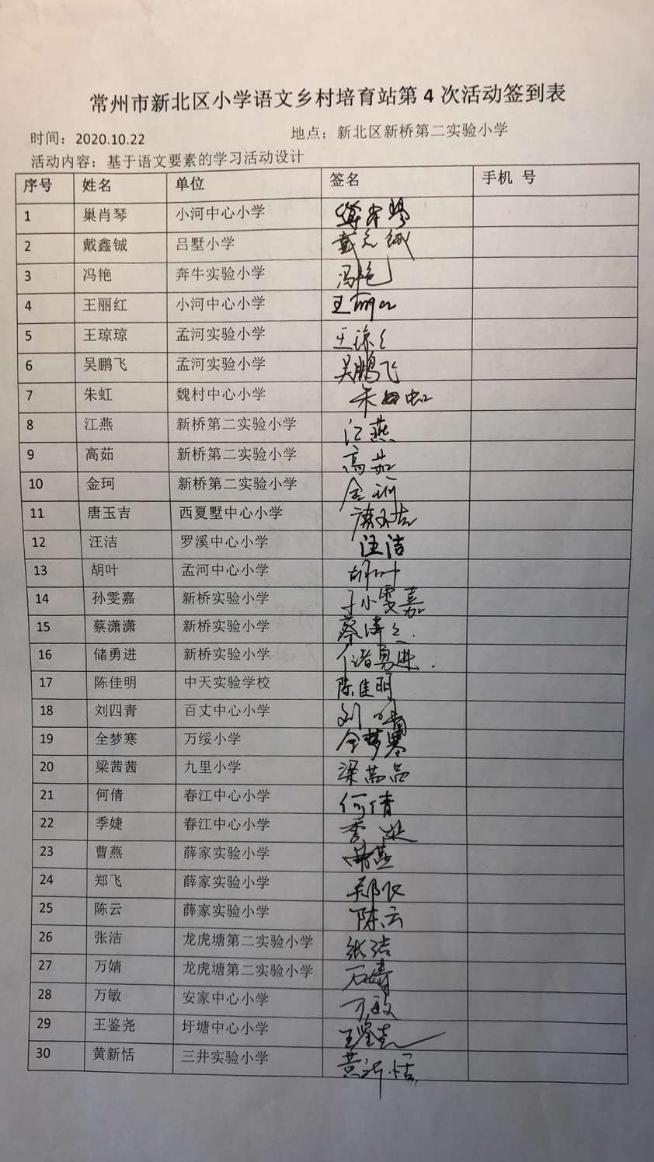 常州市新北区小学语文乡村培育站第 4 次活动签到表
时间：2020.10.22 地点：新北区新桥第二实验小学
活动内容：基于语文要素的学习活动设计
序号 姓名 单位 签名 手机 号
1 巢肖琴 小河中心小学
2 戴鑫铖 吕墅小学
3 冯艳 奔牛实验小学 冯艳
4 王丽红 小河中心小学 王丽红
5 王琼琼 孟河实验小学
6 吴鹏飞 孟河实验小学 吴鹏飞
7 朱虹 魏村中心小学
8 江燕 新桥第二实验小学 江燕
9 高茹 新桥第二实验小学 高茹
10 金珂 新桥第二实验小学 金珂
11 唐玉吉 西夏墅中心小学 唐玉吉
12 汪洁 罗溪中心小学 汪洁
13 胡叶 孟河中心小学 胡叶
14 孙雯嘉 新桥实验小学 孙雯嘉
15 蔡潇潇 新桥实验小学
16 储勇进 新桥实验小学 储勇进
17 陈佳明 中天实验学校 陈佳明
18 刘四青 百丈中心小学
19 全梦寒 万绥小学 全梦寒
20 梁茜茜 九里小学
21 何倩 春江中心小学 何倩
22 季婕 春江中心小学 季婕
23 曹燕 薛家实验小学 曹燕
24 郑飞 薛家实验小学 郑飞
25 陈云 薛家实验小学 陈云
26 张洁 龙虎塘第二实验小学 张洁
27 万婧 龙虎塘第二实验小学
28 万敏 安家中心小学 万敏
29 王鉴尧 圩塘中心小学 王鉴尧
30 黄新恬 三井实验小学 黄新恬